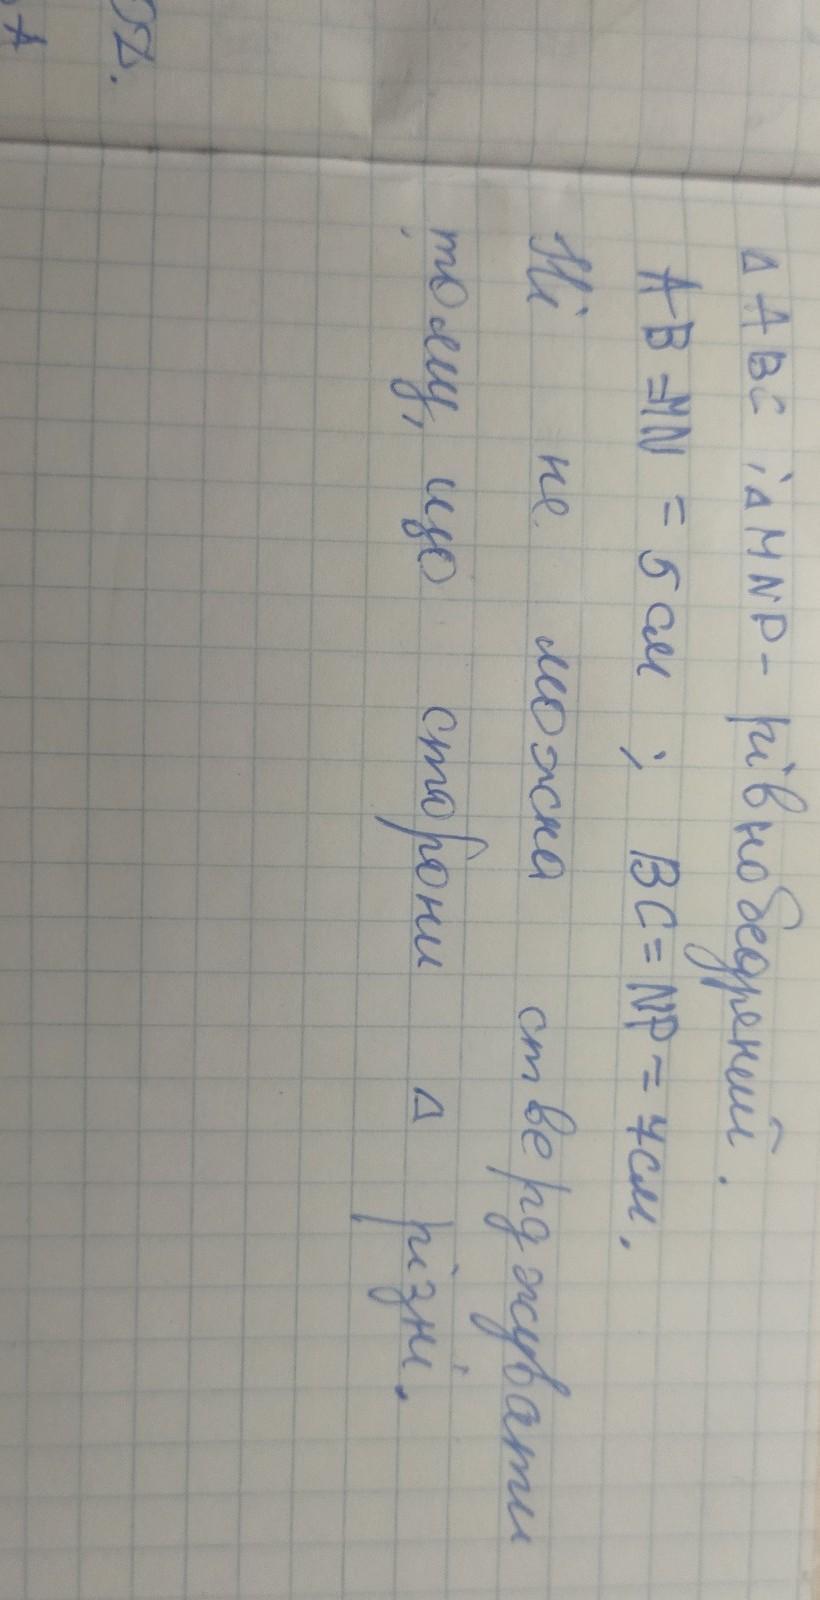 Δ ABC і Δ MNP - рівнобедрений.
AB = MN = 5 см ; BC = NP = 7 см.
Ні не можна стверджувати
, тому, що сторони Δ різні.